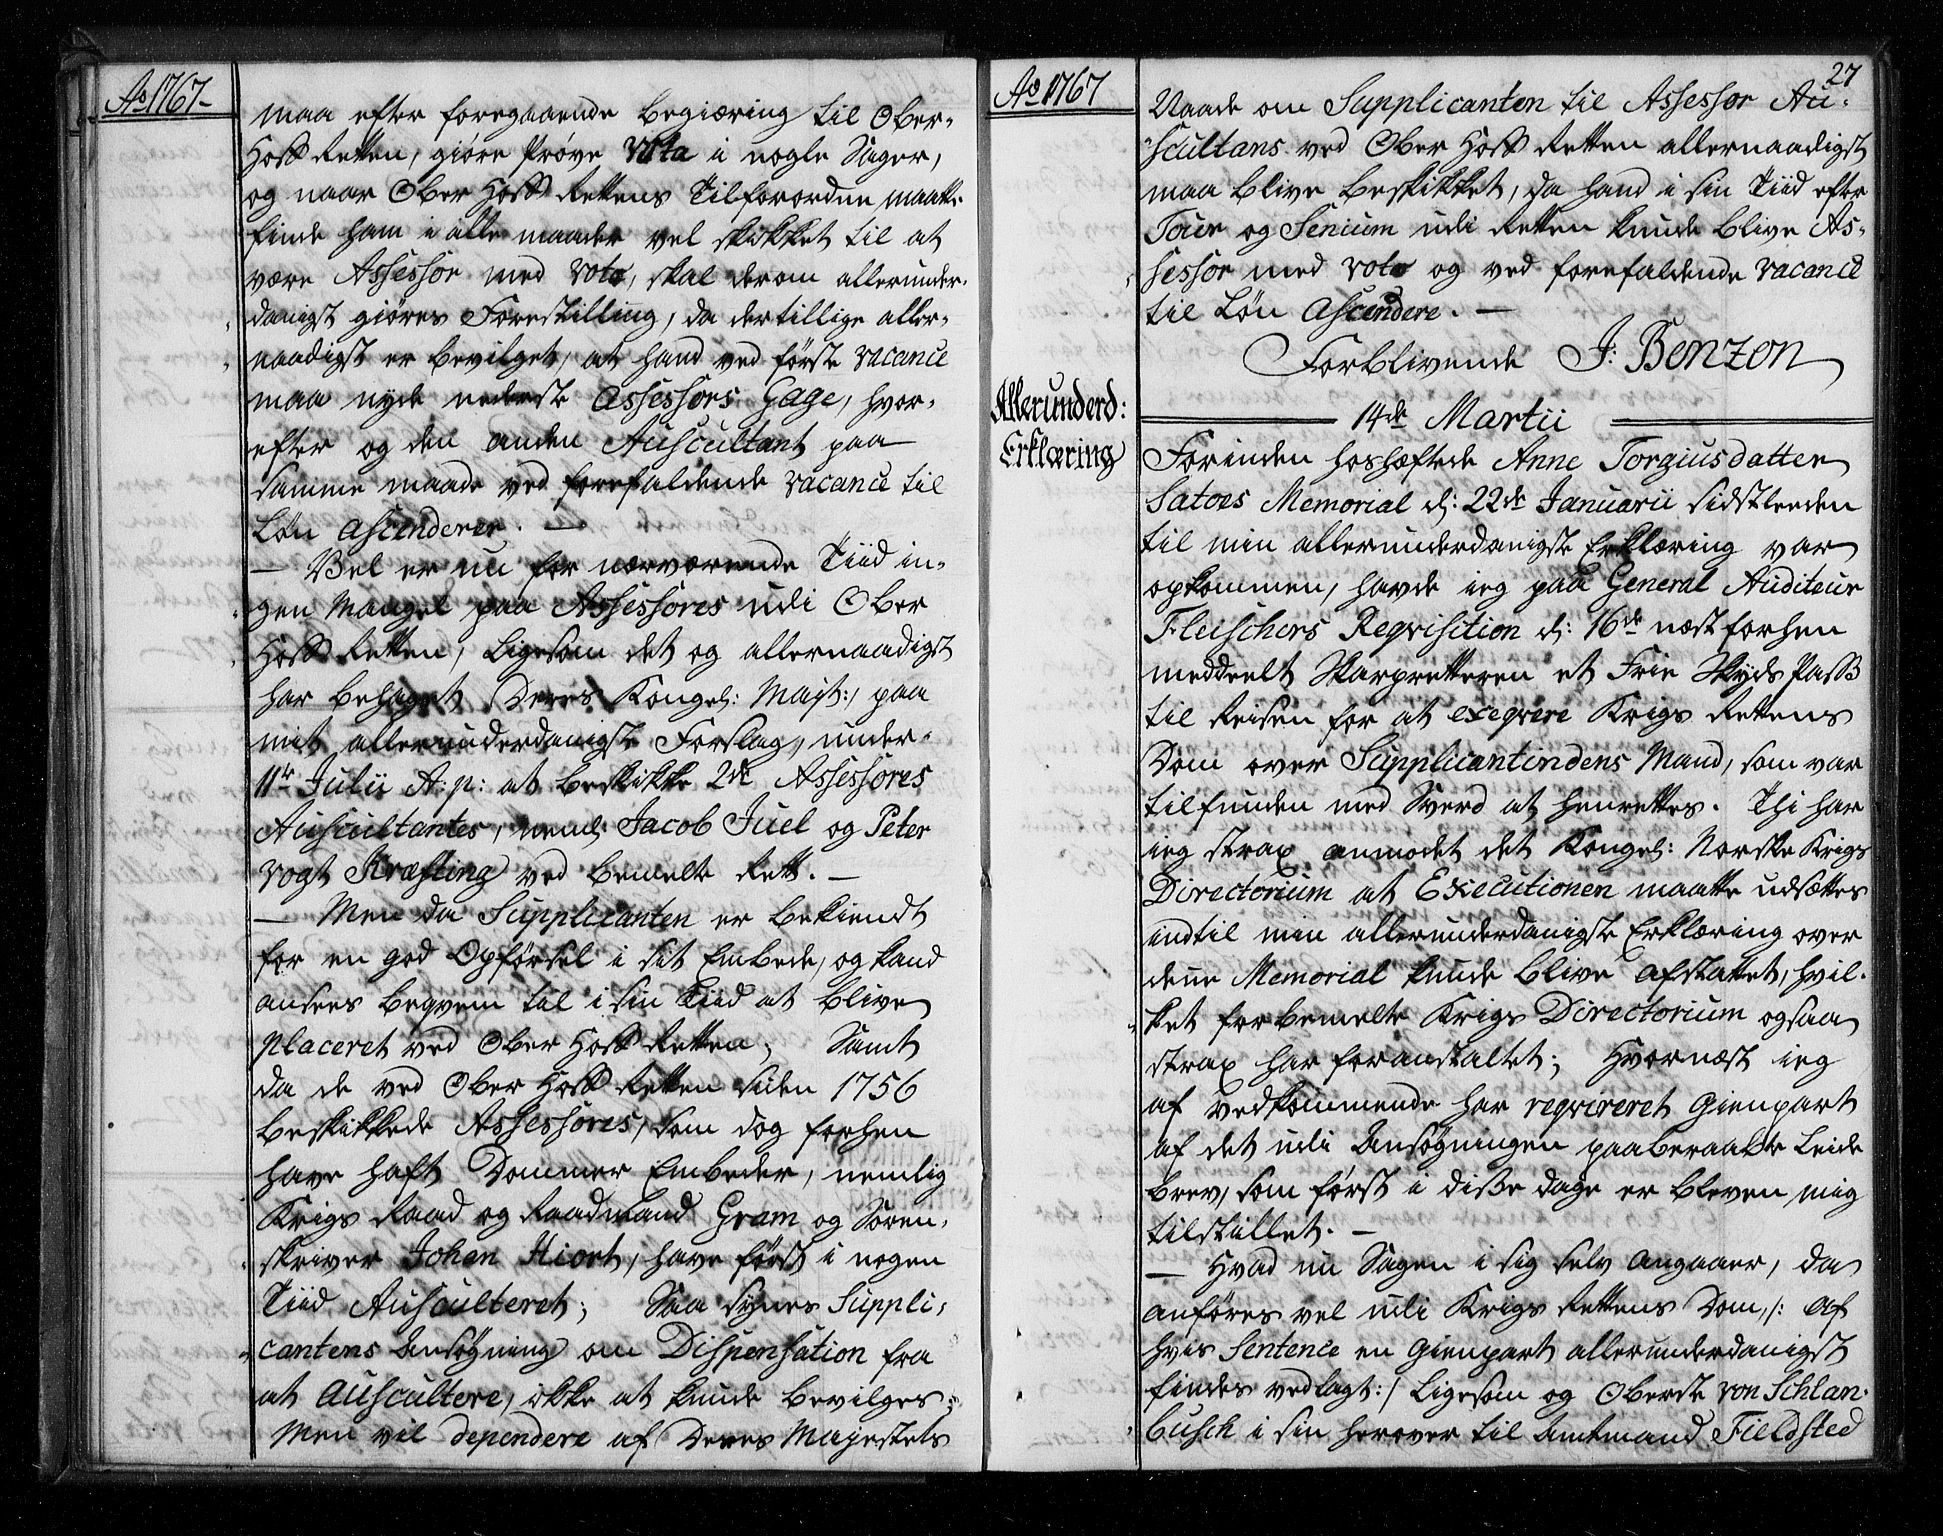 Ao 1767
maa efter foregaaende begiæring til Ober-
Hoff Retten, giøre Prøve Vota i nogle Sager,
og naar Ober Hoff Rettens Tilforordne maatte
finde ham i alle maader vel skikket til at
være Assessor med Voto, skal derom allerunder-
danigst giøres Forestilling, da dertillige aller-
naadigst er bevilget, at hand ved første vacance
maa nyde nederste Assessors Gage, hvor-
efter og den anden Auscultant paa
samme maade ved forefaldende vacance til
Løn ascenderer. —
— Vel er nu for nærværende Tiid in-
gen Mangel paa Assessores udi Ober
Hoff Retten, ligesom det og allernaadigst
har behaget Deres Kongel: Mayt: paa
mit allerunderdanigste Forslag, under
11te Julii A: p: at beskikke 2de Assessores
Auscultantes, neml: Jacob Juel og Peter
Vogt Kræfting ved bemelte Rett. —
— Men da Supplicanten er bekiendt
for en god Opførsel i sit Embede, og kand
ansees beqvem til i sin Tiid at blive
placeret ved Ober Hoff Retten; Samt
da de ved Ober Hoff Retten siden 1756
beskikkede Assessores, som dog forhen
have haft Dommer Embeder, nemlig
Krigs Raad og Raadmand Gram og Soren-
skriver Johan Hiort, have først i nogen
Tiid Ausculteret; Saa synes Suppli-
cantens Ansøgning om Dispensation fra
at Auscultere, ikke at kunde bevilges;
Men vil dependere af Deres Majestets
Ao 1767
27
Naade om Supplicanten til Assessor Au-
scultans ved Ober Hoff Retten allernaadigst
maa blive beskikket, da hand i sin Tiid efter
Tour og Senium udi Retten kunde blive As-
sessor med Voto og ved forefaldende vacance
til Løn Ascendere. —
Forblivende J: Benzon
14de Martii
Allerunderd:
Erklæring
Forinden hoshæftede Anne Torgiusdatter
Satoes Memorial d: 22de Januarii sidstleeden
til min allerunderdanigste Erklæring var
opkommen, havde ieg paa General Auditeur
Fleischers Reqvisition d: 16de næst forhen
meddeelt Skarpretteren et Frie Skyds Pass
til Reisen for at exeqvere Krigs Rettens
Dom over Supplicantindens Mand, som var
tilfunden med Sverd at henrettes. Thi har
ieg strax anmodet det Kongel: Norske Krigs
Directorium at Executionen maatte udsættes
indtil min allerunderdanigste Erklæring over
dene Memorial kunde blive afstattet, hvil-
ket forbemelte Krigs Directorium ogsaa
strax har foranstaltet; Hvornæst ieg
af vedkommende har reqvireret Gienpart
af det udi Ansøgningen paaberaabte Leide
brev, som først i disse dage er bleven mig
tilstillet. —
— Hvad nu Sagen i sig selv angaaer, da
anføres vel udi Krigs Rettens Dom, /: af
hvis Sentence en Gienpart allerunderdanigst
findes vedlagt :/ ligesom og Oberste von Schlan-
busch i sin herover til Amtmand Fieldsted